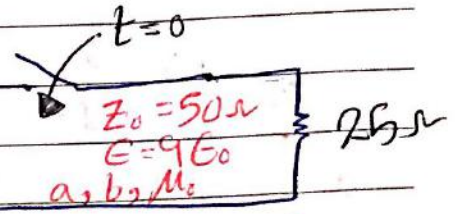 t=0
Z₀=50Ω
ϵ=9ϵ₀
a, b, μ₀
25Ω